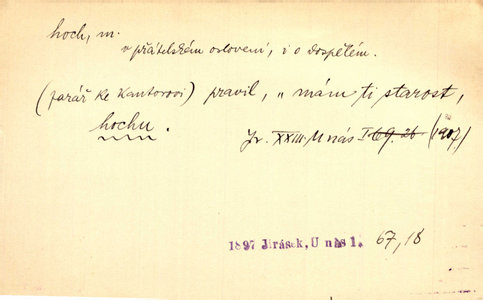 hoch, m.
v přátelském oslovení, i o dospělém.
(farář ke Kantorovi) pravil, „mám ti starost,
hochu.
Jr. XXIII. U nás I 69. 26 (1907)
1897 Jirásek, U nás 1. 67, 18